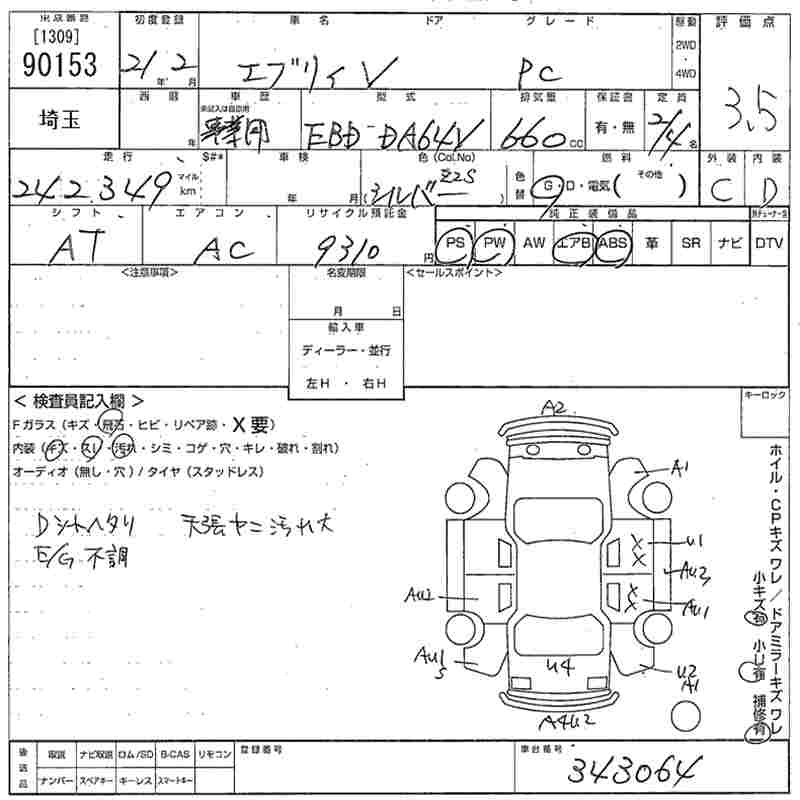 出品番号 初度登録 車名 ドア グレード 駆動 評価点
[1309]
90153 21年2月 エブリィV PC 2WD・4WD 3.5
西暦 車歴 型式 排気量 保証書 定員
未記入は自家用
埼玉 年 事業用 EBD-DA64V 660cc 有・無 2/4名
走行 $#* 車検 色(Col.No) 色替 燃料 外装 内装
242.349 マイル km 年 月 シルバー Z2S G・D・電気( その他 ) C D
シフト エアコン リサイクル預託金 純正装備品
AT AC 9310円 PS PW AW エアB ABS 革 SR ナビ DTV
<注意事項> 名変期限 <セールスポイント>
月 日
輸入車
ディーラー・並行
左H ・ 右H
キーロック
< 検査員記入欄 >
Fガラス(キズ・飛石・ヒビ・リペア跡・X要)
内装(キズ・スレ・汚れ・シミ・コゲ・穴・キレ・破れ・割れ)
オーディオ(無し・穴)/タイヤ(スタッドレス)
Dシートヘタリ 天張ヤニ汚れ大
E/G不調
A2
A1
U1
AU3
AU1
AU2
AU1
S
U4
U2
A1
A4U2
ホイル・CPキズワレ/ドアミラーキズワレ
小キズ有 小U有 補修有
後送品 取説 ナビ取説 ロム/SD B-CAS リモコン 登録番号 車台番号
ナンバー スペアキー キーレス スマートキー 343064